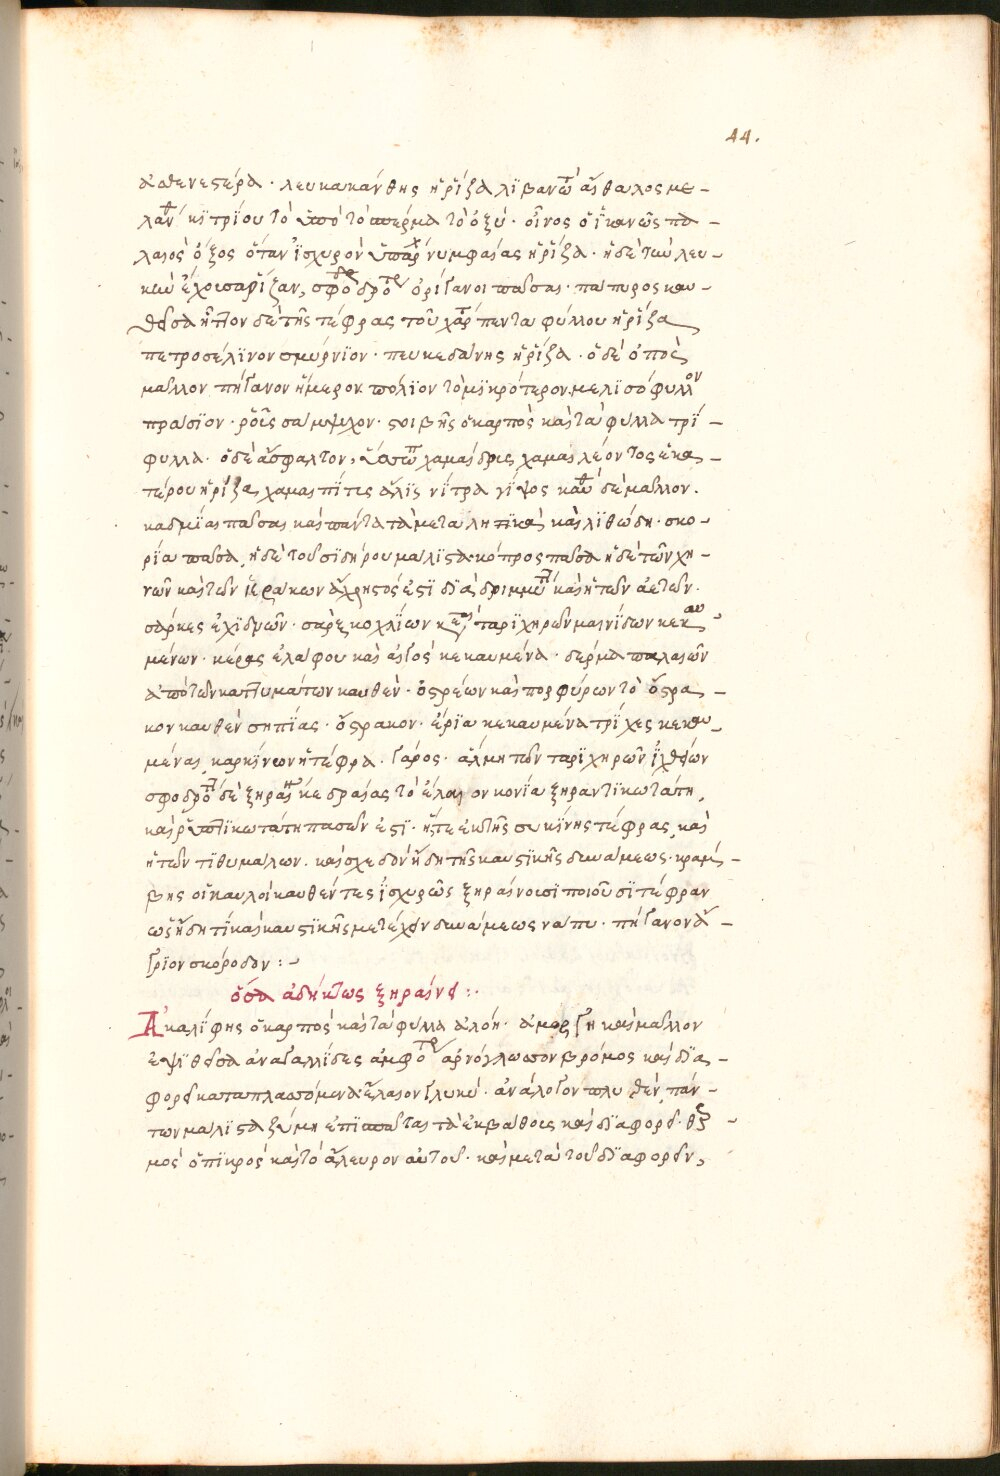 44.
ἀσθενεστέρα · λευκακάνθης ἡ ῥίζα λϊβανωτ αἴθαλος με-
λαν κϊτρίου τὸ ὑπὸ τὸ σπέρμα τὸ ὀξύ · οἶνος ὁ ἱκανῶς πα-
λαιὸς ὄξος ὅταν ἰσχυρὸν ὑπάρχ νυμφαίας ἡ ῥίζα · ἡ δὲ τὴν λευ-
κὴν ἔχουσα ῥίζαν, σφοδρότερ ὀρίγανοι πᾶσαι · πάπυρος καυ-
θεῖσα ἧττον δὲ τῆς τέφρας τοῦ χάρ πενταφύλλου ἡ ῥίζα
πετροσέλϊνον σμύρνϊον · πευκεδάνης ἡ ῥίζα · ὁ δὲ ὀπὸς
μᾶλλον πήγανον ἥμερον πόλϊον τὸ μϊκρότερον μελϊσσόφυλλον
πράσϊον · ῥοῦς σάμψυχον · στοιβῆς ὁ καρπὸς καὶ τὰ φύλλα τρί-
φυλλα · ὁ δὲ ἄσφαλτον, χαμαίδρις χαμαιλέοντος ἑκα-
τέρου ἡ ῥίζα, χαμαιπίτις ἅλϊς νίτρα γύψος καυ δὲ μᾶλλον.
καδμίαι πᾶσαι καὶ πάντα τὰ μεταλλητϊκὰ καὶ λϊθώδη · σκο-
ρία πᾶσα, ἡ δὲ τοῦ σϊδήρου μάλϊστα κόπρος πᾶσα ἡ δὲ τῶν χη-
νῶν καὶ τῶν ἱεράκων ἄχρηστός ἐστϊ δϊὰ δριμμύτ καὶ ἡ τῶν ἀετῶν.
σάρκες ἐχϊδνῶν · σὰρξ κοχλϊῶν ταρϊχηρῶν μαινίδων κεκαυ-
μένων · κέρας ἐλάφου καὶ αἰγὸς κεκαυμένα · δέρμα παλαιῶν
ἀπὸ τῶν καττυμάτων καυθὲν · ὀστρέων καὶ πορφύρων τὸ ὄστρα-
κον καυθὲν σηπίας · ὄστρακον · ἔρϊα κεκαυμένα τρίχες κεκαυ-
μέναι, καρκίνων ἡ τέφρα · γάρος · ἅλμη τῶν ταρϊχηρῶν ἰχθύων
σφοδρότ δὲ ξηραίν κεδραίας τὸ ἔλαιον κονία ξηραντικωτάτη,
καὶ ῥυπτϊκωτάτη πασῶν ἐστϊ · ἥτε ἐκ τῆς συκίνης τέφρας, καὶ
ἡ τῶν τϊθυμάλων. καὶ σχεδὸν ἤδη τῆς καυστϊκῆς δυνάμεως · κράμ-
βης οἱ καυλοὶ καυθέντες ἰσχυρῶς ξηραίνουσϊ ποιοῦσϊ τέφραν
ὡς ἤδη τι καὶ καυστϊκῆς μετέχειν δυνάμεως νάπυ · πήγανον ἄ-
γρϊον σκόροδον :-
ὅσα ἀδήκτως ξηραίνει :.
Ἀκαλίφης ὁ καρπὸς καὶ τὰ φύλλα ἀλόη · ἀμόργη καὶ μᾶλλον
ἑψϊθεῖσα ἀναγαλλίδες ἀμφότερ ἀρνόγλωσσον βρόμος καὶ δϊα-
φορεῖ καταπλασσόμενα ἔλαιον γλυκύ · ἀνάλογον πλυθὲν, πάν-
των μάλϊστα ζύμη ἐπϊσπᾶται τὰ ἐκ βάθους καὶ δϊαφορεῖ · θέρ-
μος ὁ πϊκρὸς καὶ τὸ ἄλευρον αὐτοῦ · καὶ μετὰ τοῦ δϊαφορεῖν,